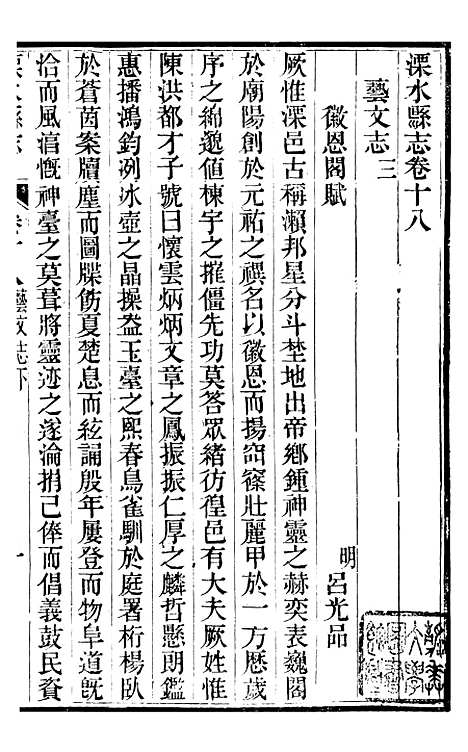 溧水縣志卷十八
藝文志三
徽恩閣賦
明 呂光品
厥惟溧邑古稱瀨邦星分斗埜地出帝鄉鍾神靈之赫奕表巍閣
於廟陽創於元祐之禩名以徽恩而揚窅篠壯麗甲於一方歷歲
序之綿邈值棟宇之摧僵先功莫答眾緒彷徨邑有大夫厥姓惟
陳洪都才子號曰懷雲炳炳文章之鳳振振仁厚之麟哲懸朗鑑
惠播鴻鈞冽冰壺之晶操盎玉臺之熙春鳥雀馴於庭署桁楊臥
於蒼茵案牘塵而圖牒飭夏楚息而絃誦殷年屢登而物阜道旣
洽而風淯慨神臺之莫葺將靈迹之遂淪捐己俸而倡義鼓民資
卷十八 藝文志下 一